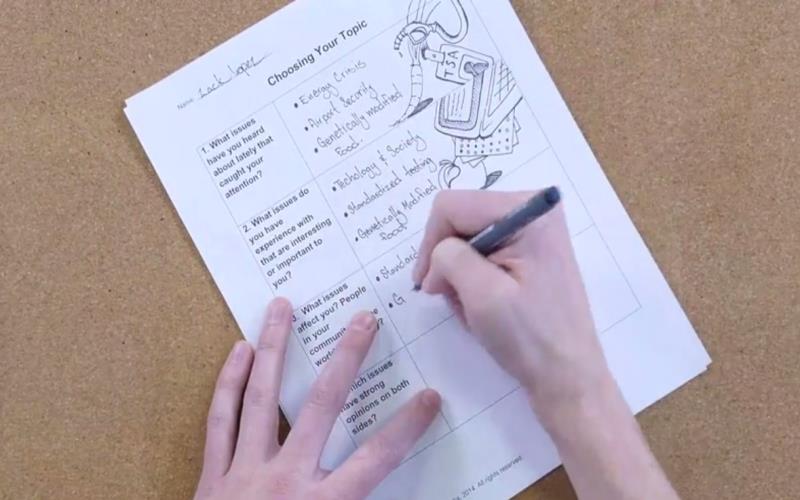 Name: Zack Lopez
Choosing Your Topic
1. What issues
have you heard
about lately that
caught your
attention?
• Energy Crisis
• Airport Security
• Genetically modified
Food.
TSA
2. What issues do
you have
experience with
that are interesting
or important to
you?
• Techology & Society
• Standardized testing
• Genetically Modified
Food
3. What issues
affect you? People
in your
• Standard
• G
which issues
have strong
opinions on both
sides?
2014. All rights reserved.